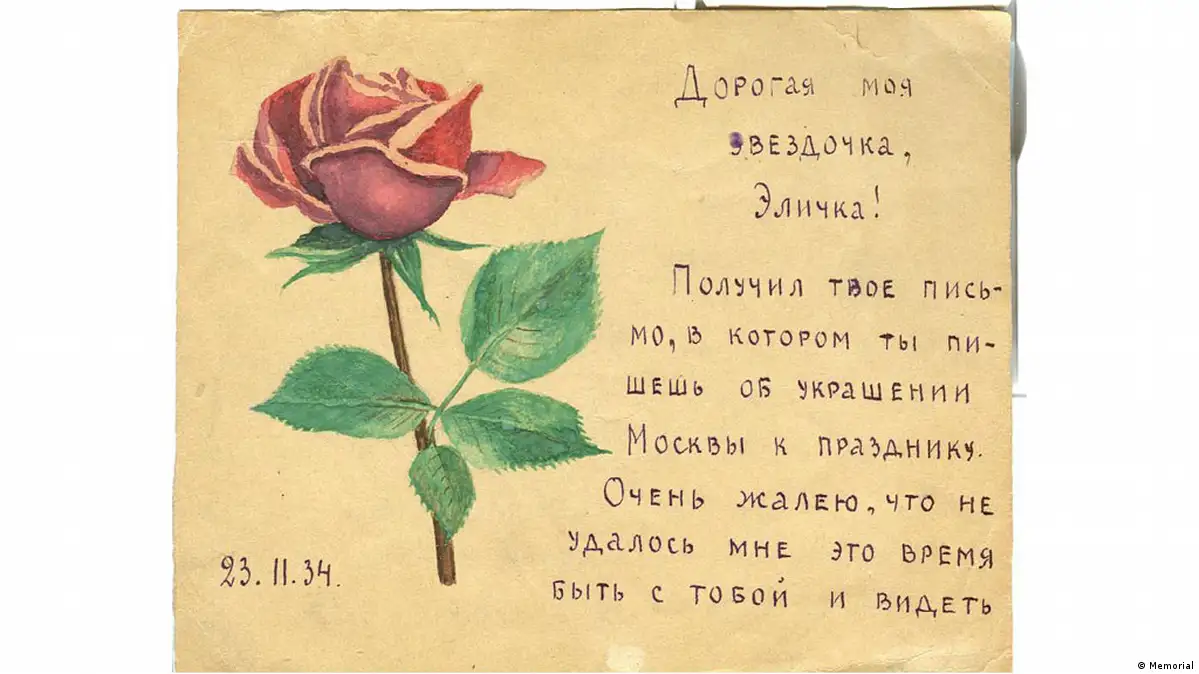 Дорогая моя
звездочка,
Эличка!
Получил твое пись-
мо, в котором ты пи-
шешь об украшении
Москвы к празднику.
Очень жалею, что не
удалось мне это время
быть с тобой и видеть
23.11.34.
© Memorial